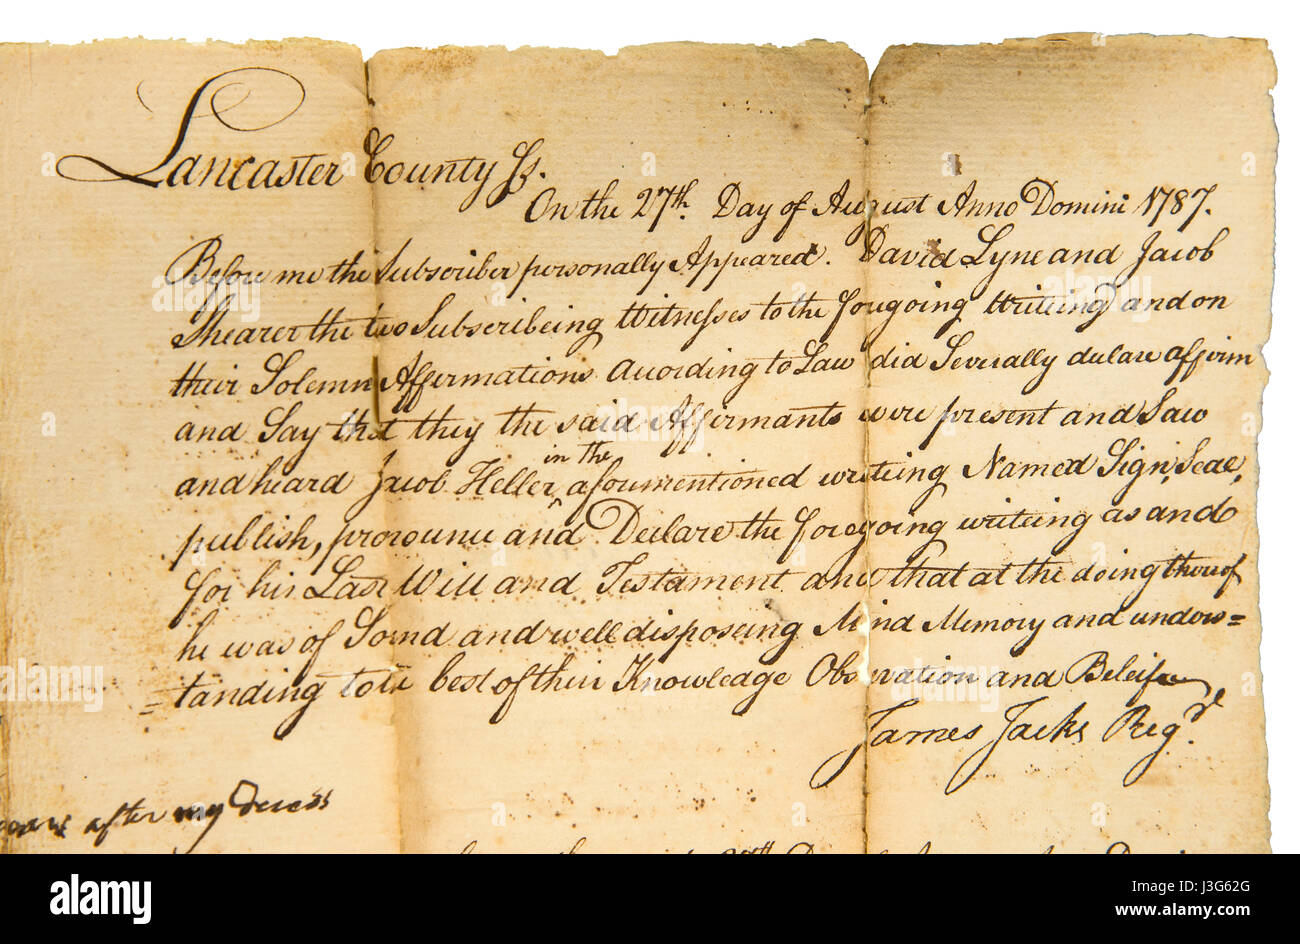 Lancaster County Ss.
On the 27th. Day of August Anno Domini 1787.
Before me the Subscriber personally Appeared. David Lyne and Jacob
Shearer the two Subscribeing Witnesses to the foregoing Writeing and on
their Solemn Affirmations Acording to Law did Severally declare affirm
and Say that they the said Affirmants were present and Saw
in the
and heard Jacob Heller ^ aforementioned writeing Named Sign, Seal,
publish, pronounce and Declare the foregoing writeing as and
for his Last Will and Testament and that at the doing thereof
he was of Sound and well disposeing Mind Memory and unders=
=tanding to the best of their Knowledge Observation and Beleif
James Jacks Regd.
after my Decess
alamy
Image ID: J3G62G
www.alamy.com